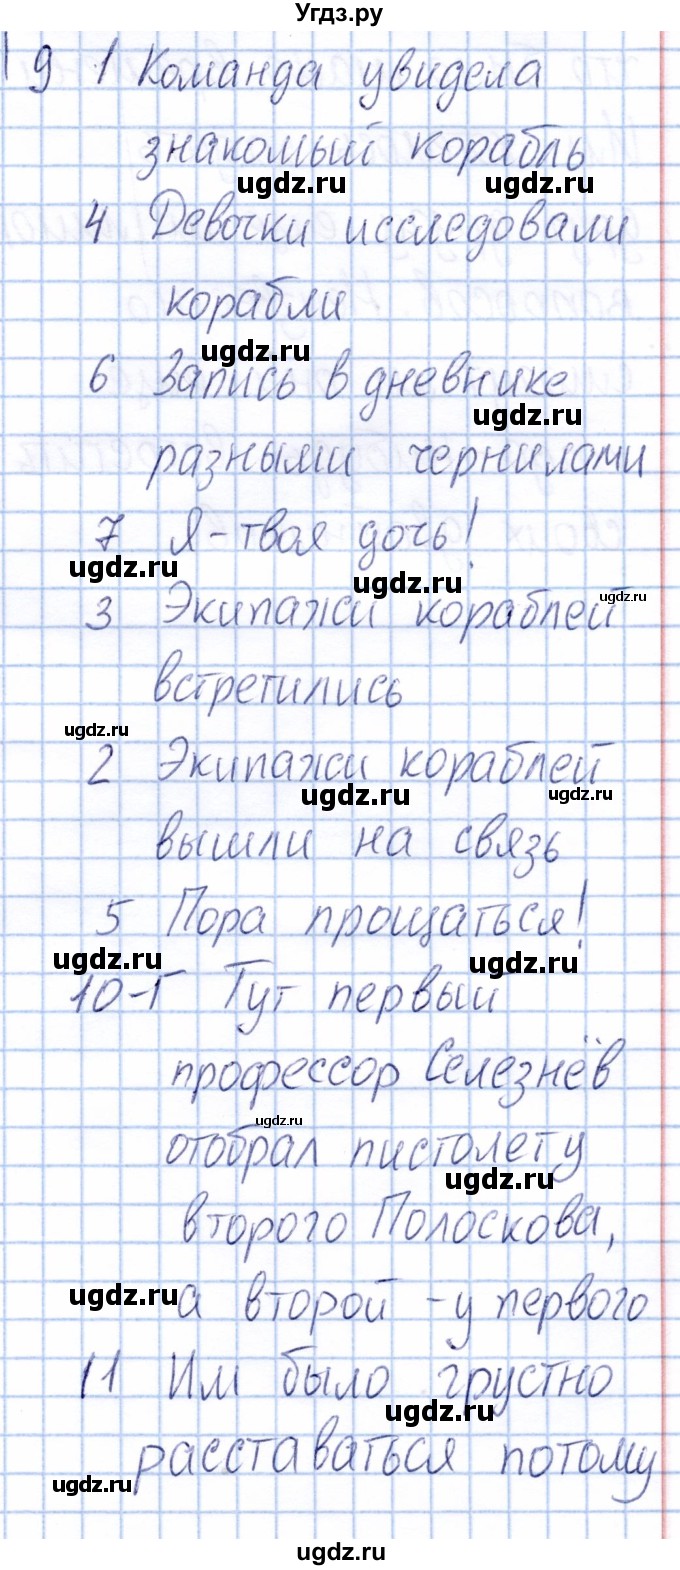 Угдз.ру
9 1 Команда увидела
знакомый корабль
ugdz.ru ugdz.ru
4 Девочки исследовали
корабли
ugdz.ru
6 Запись в дневнике
ugdz.ru
разными чернилами
7 Я - твоя дочь!
ugdz.ru ugdz.ru
3 Экипажи кораблей
ugdz.ru
встретились
ugdz.ru
2 Экипажи кораблей
ugdz.ru ugdz.ru
вышли на связь
5 Пора прощаться!
ugdz.ru ugdz.ru
10-Г Тут первый
профессор Селезнёв
ugdz.ru
отобрал пистолет у
ugdz.ru
второго Полоскова,
ugdz.ru
а второй - у первого
11 Им было грустно
ugdz.ru
расставаться потому
ugdz.ru
ugdz.ru